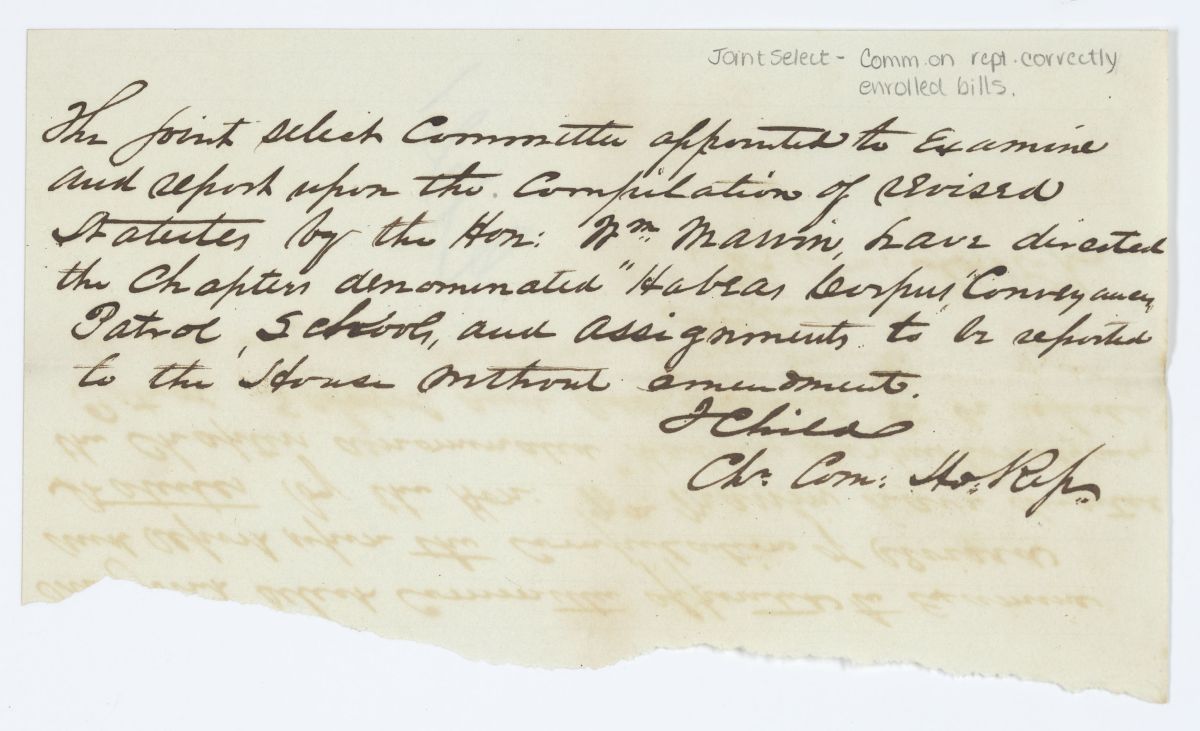 Joint Select - Comm. on rept. correctly
enrolled bills.
The joint select Committee appointed to Examine
and report upon the Compilation of revised
Statutes by the Hon: Wm. Marvin, have directed
the Chapters denominated "Habeas Corpus, Conveyances,
Patrol, Schools, and Assignments to be reported
to the House without amendment.
J Child
Chr. Com: Ho: Rep.